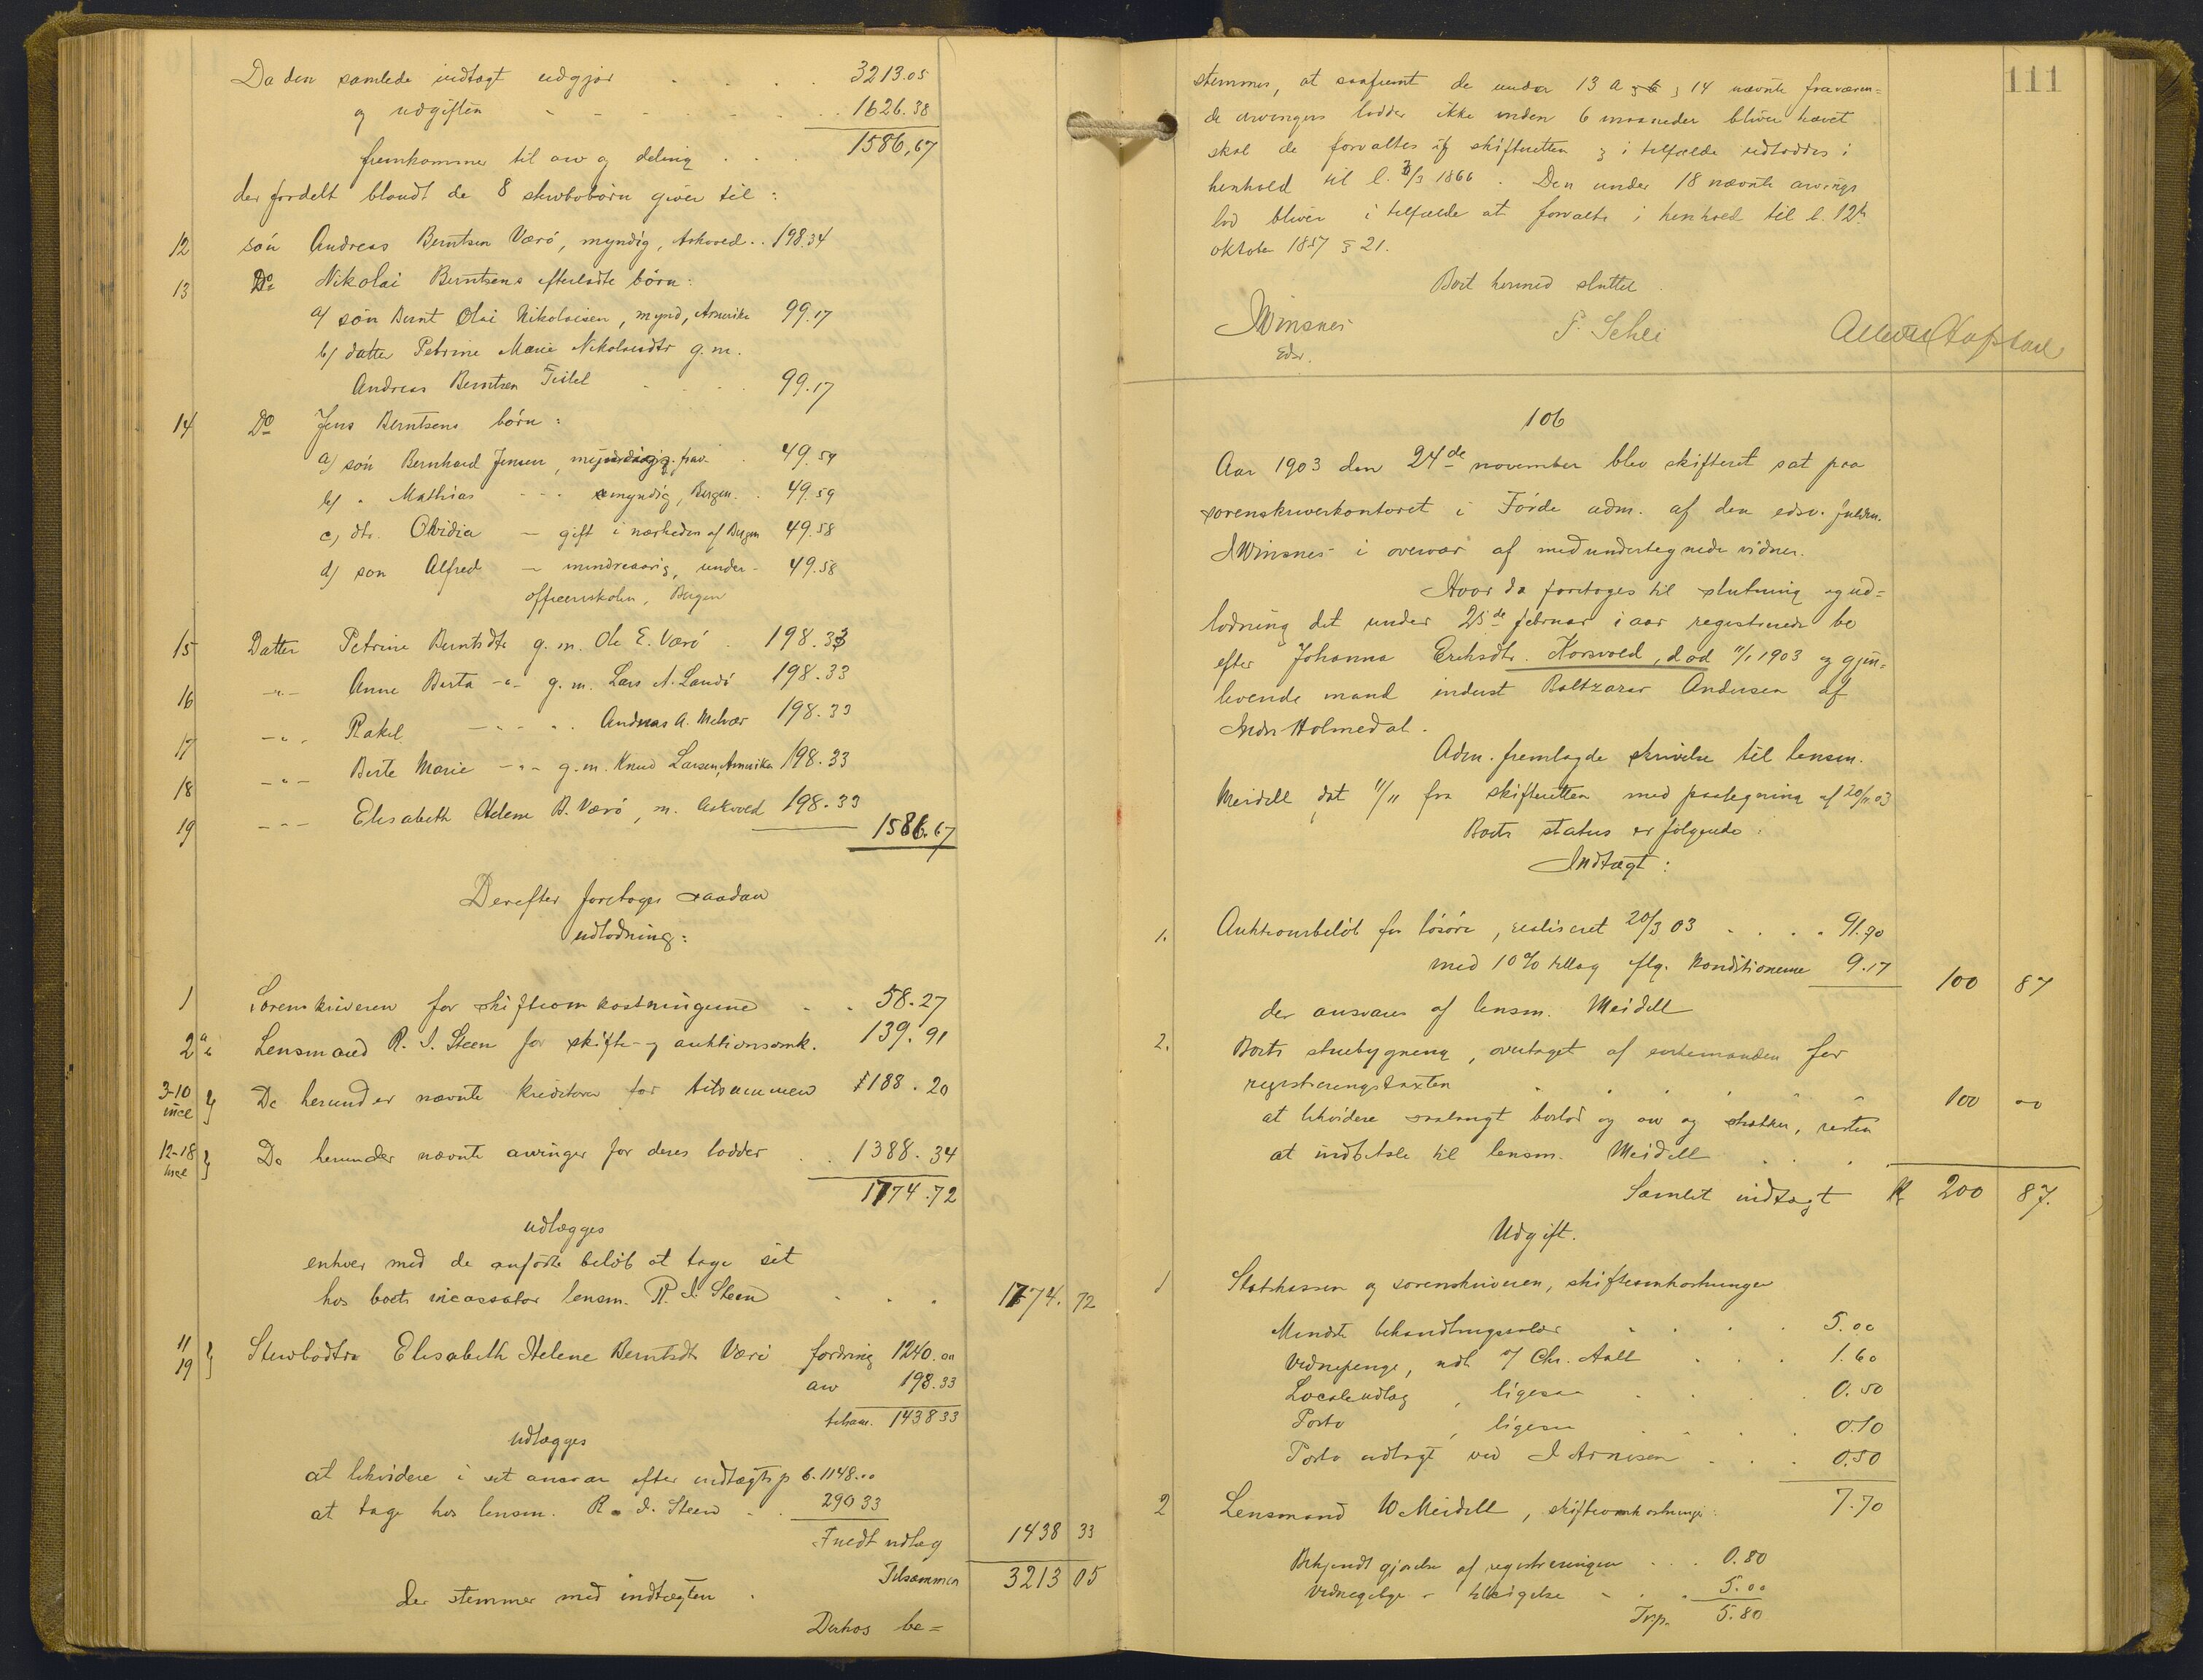 Da den samlede indtægt udgjør . . . 3213.05
og udgiften - - - - - . . 1626.38
fremkommer til arv og deling . . . 1586,67
der fordelt blandt de 8 stervbobørn giver til :
12 søn Andreas Berntsen Værø, myndig, Askvoll . . 198.34
13 Do Nikolai Berntsens efterladte børn:
a) søn Bernt Olai Nikolaisen, mynd, Amerika 99.17
b) datter Petrine Marie Nikolaidtr g. m.
Andreas Berntsen Tistel - - - - 99.17
14 Do Jens Berntsens børn :
a) søn Bernhard Jensen, myndig, frav. . 49.59
b) " Mathias - - - myndig, Bergen . . 49.59
c) dtr. Olvidia - gift i nærheden af Bergen 49.58
d) søn Alfred - mindreaarig, under- 49.58
officerskolen, Bergen
15 Datter Petrine Berntsdtr g. m. Ole E. Værø . 198.33
16 -"- Anne Berta -"- g. m. Lars A. Landø 198.33
17 -"- Rakel - - - . . Andreas A. Melvær 198.33
18 -"- Berte Marie -"- g. m. Knud Larsen, Amerika 198.33
19 - - - Elisabeth Helene B. Værø, m. Askvoll 198.33
1586.67
Derefter foretoges saadan
udlodning:
1 Sorenskriveren for skifteomkostningerne . . 58.27
2 a b Lensmand R. I. Steen for skifte- og auktionsomk. 139.91
3-10 incl } De herunder nævnte kreditorer for tilsammen 188.20
12-18 incl } De herunder nævnte arvinger for deres lodder . . 1388.34
1774.72
udlægges
enhver med de anførte beløb at tage sit
hos boets incassator lensm. R. I. Steen . . . 1774. 72
11 19 } Stervbodtr Elisabeth Helene Berntsdtr Værø fordring 1240.00
arv 198.33
tilsam. 1438 33
udlægges
at likvidere i sit ansvar efter indtægtsp 6. 1148.00
at tage hos lensm. R. I. Steen - . 290 33
Fuldt udlæg 1438 33
Tilsammen 3213 05
der stemmer med indtægten .
Derhos be=
111
stemmes, at saafremt de under 13 a og 14 nævnte fraværen=
de arvingers lodder ikke inden 6 maaneder bliver hævet
skal de forvaltes af skifteretten og i tilfælde udloddes i
henhold til l. 3/3 1866 . Den under 18 nævnte arvings
lod bliver i tilfælde at forvalte i henhold til l. 12te
oktober 1857 § 21.
Boet hermed sluttet .
JWinsnes P. Schei
edsv.
106
Aar 1903 den 24de november blev skifteret sat paa
sorenskriverkontoret i Førde adm. af den edsv. fuldm.
JWinsnes i overvær af medundertegnede vidner.
Hvor da foretoges til slutning og ud=
lodning det under 25de februar i aar registrerede bo
efter Johanna Eriksdtr. Korsvold, død 11/1 1903 og gjen=
levende mand inderst Baltzarar Andersen af
Indre Holmedal .
Adm. fremlagde skrivelse til lensm.
Meidell dat 11/11 fra skifteretten med paategning af 20/11 03
Boets status er følgende :
Indtægt :
1. Auktionsbeløb for løsøre, realiseret 20/3 03 . . . . 91.70
med 10% tillæg flg. konditionerne 9.17 100 87
der ansvares af lensm. Meidell
2. Boets stuebygning, overtaget af enkemanden for
registreringstaxten . . . . . . 100 00
at likvidere saalangt boslod og arv og strækker, resten
at indbetale til lensm. Meidell . . .
Samlet indtægt Kr 200 87.
Udgift.
1 Statskassen og sorenskriveren, skifteomkostninger
Mindste behandlingssalær . . . . 5.00
Vidnepenge, udl. af Chr. Aall . . . 1.60
Localeudlæg , ligesaa . . . . 0.50
Porto , ligesaa . . . . 0.10
Porto udlagt ved I Arnesen . . . 0.50
7.70
2 Lensmand W Meidell, skifteomkostninger:
Bekjendtgjørelse af registreringen . . . 0.80
Vidnegebyr - . . 5.00
Trsp. 5.80